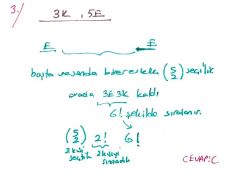 3.) 3K, 5E
E E
başta ve sonda birer erkek (5 2) seçtik
arada 3E 3K kaldı
6! şekilde sıralanır.
(5 2) 2! 6!
2 kişi seçtik 2 kişiyi sıraladık
CEVAP: C